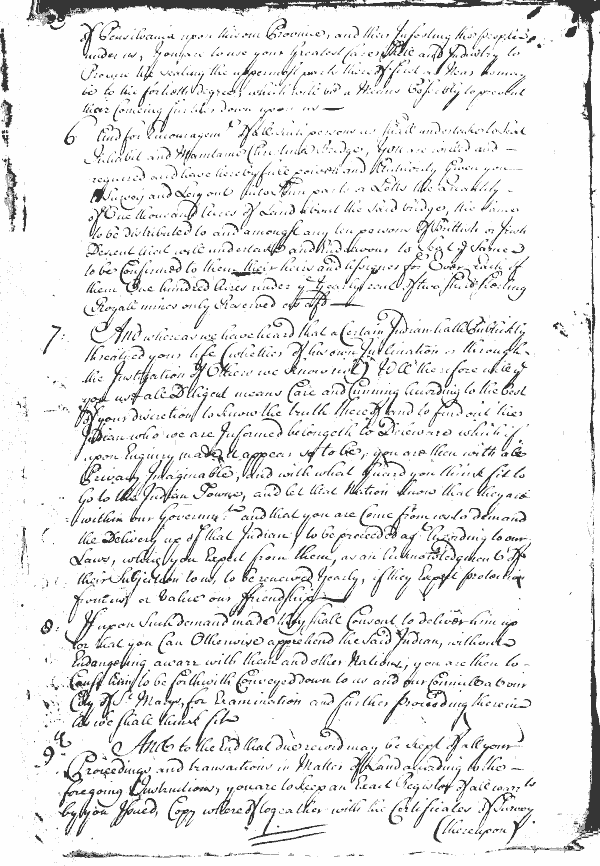 of Pensilvania upon this our Province, and their Infesting the people
under us, you are to use your Greatest Care and Industry to
Procure the seating the uppermost parts thereof first as Near as may
be to the fortieth degree, which will bee a Means Possibly to prevent
their Comeing further down upon us —
6 And for Encouragem.t of all such persons as shall undertake to Seat
Inhabit and Maintaine Christina Bridge, you are willed and —
required and have hereby full power and Authority Given you
to Survey and Ley out into Tenn parts or Lotts the Quantity
of One thousand Acres of Land about the said bridge, the same
to be distributed to and amongst any ten persons of Brittish or Irish
Descent that will undertake and Endeavour to Seat y.e Same
to be Confirmed to them their heires and assignes for Ever, Each of
them One hundred Acres under y.e Yearly rent of two Shill sterling
Royall mines only Reserved as afd —
7: And whereas we have heard that a Certain Indian hath Publickly
threatned your life (whether of his own Inclination or through
the Instigation of Others we know not) Will therefore wee y.t
you use all Diligent means Care and Cunning According to the best
of your discretion to know the truth thereof and to find out this
Indian who we are Informed belongeth to Delaware which if
upon Enquiry made it appears so to be, you are then with all
Privacy Imaginable, and with what Guard you think fit to
Go to the Indian Towne, and let that Nation know that they are
within our Governm.t and that you are Come from us to demand
the Delivery up of that Indian, to be proceeded ag.t According to our
Laws, which you Expect from them, as an Acknowledgment of
their Subjection to us, to be renewed Yearly, if they Expect protection
from us or value our friendship —
8: If upon Such demand made they shall Consent to deliver him up
or that you Can Otherwise apprehend the said Indian, without
Endangering a warr with them and other Nations, you are then to
Cause him to be forthwith Conveyed down to us and our Councill at our
City of S.t Marys, for Examination and further proceeding therein
as we shall think fit
9: And to the End that due record may be kept of all your
Proceedings and transactions in Matter of Land according to the
foregoing Instructions, you are to keep an Exact Register of all warr.ts
by you Issued, Copy whereof together with the Certificates of Survey
(thereupon